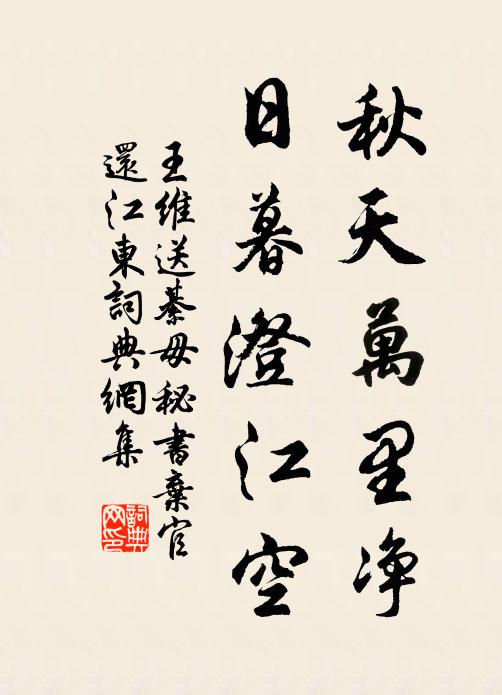 秋天萬里净
日暮澄江空
王維送綦毋秘書棄官
還江東詞典網集
詞典
网印